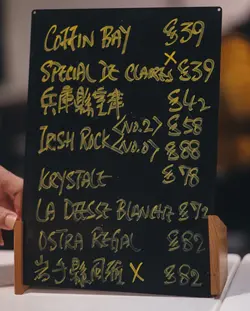 COFFIN BAY $39
SPECIAL DE CLAIRES X $39
兵庫縣室津 $42
IRISH ROCK <NO.2> $58
<NO.0> $88
KRYSTALE $78
LA DEESSE BLANCHE $72
OSTRA REGAL $82
岩手縣 X $82